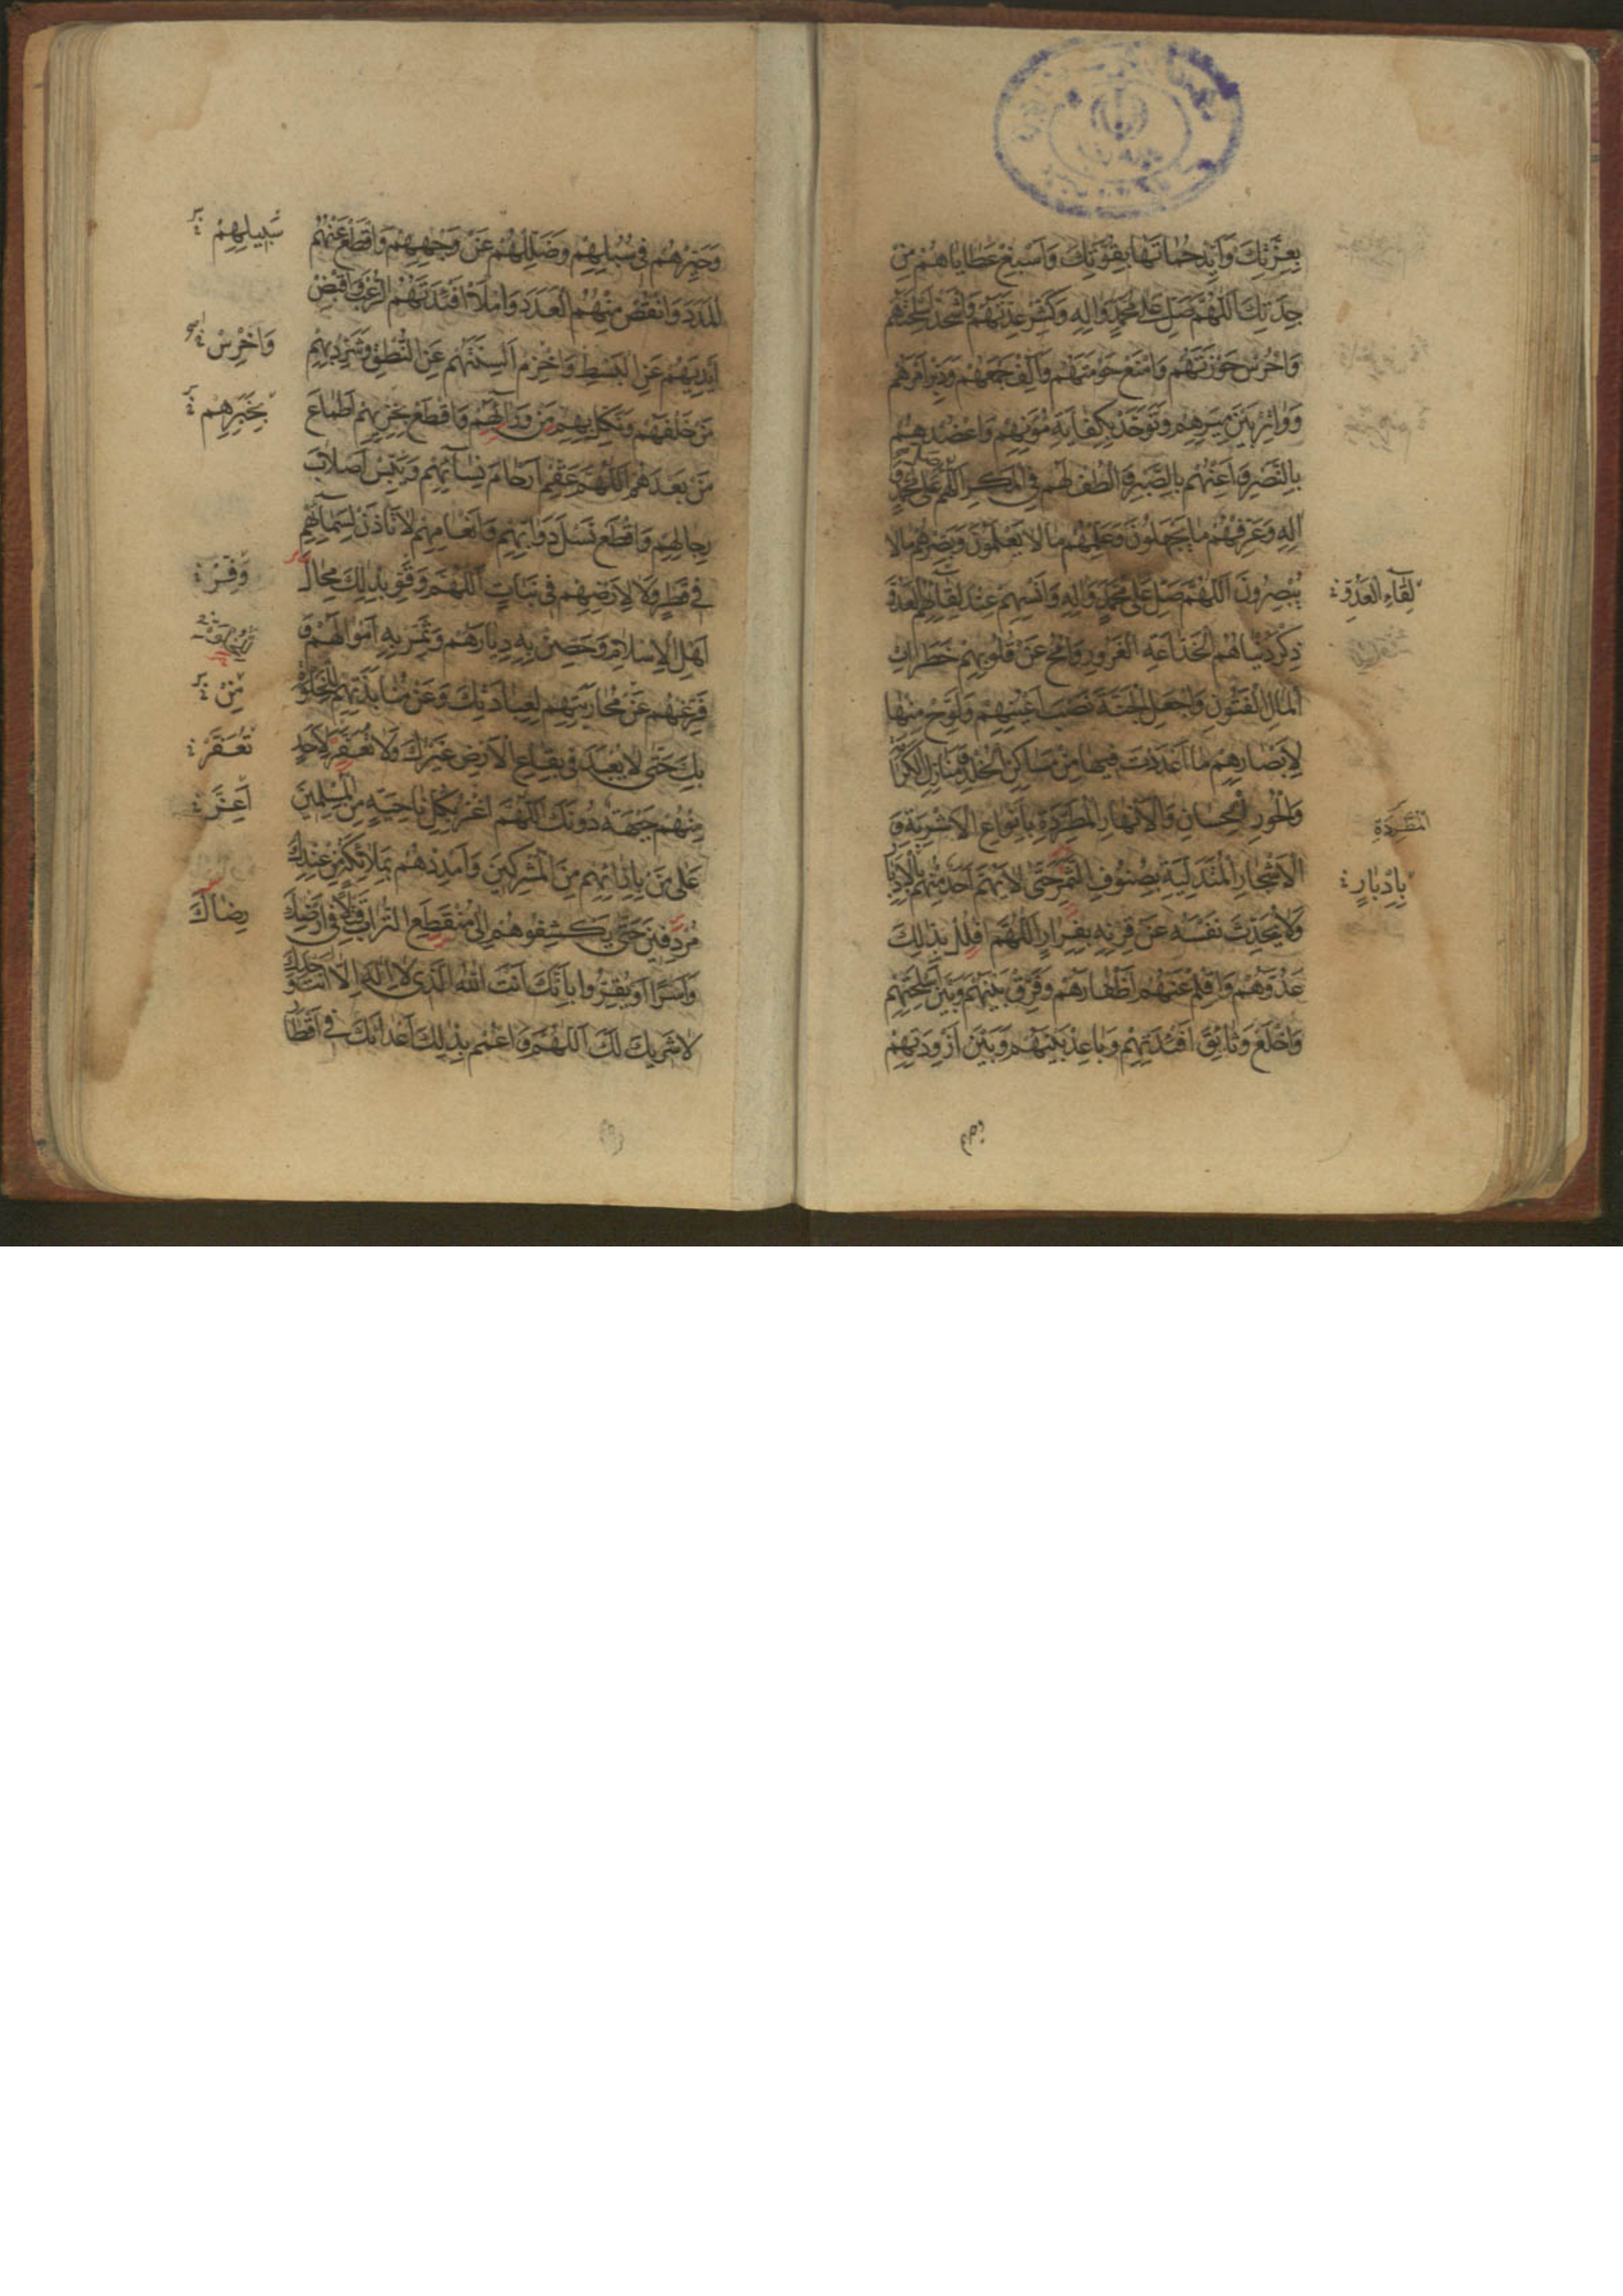 بِعِزَّتِكَ وَاَيِّدْ حُماتَها بِقُوَّتِكَ وَاَسْبِغْ عَطاياهُمْ مِنْ
جِدَتِكَ اَللّهُمَّ صَلِّ عَلى مُحَمَّدٍ وَالِهِ وَكَثِّرْ عِدَّتَهُمْ وَاشْحَذْ اَسْلِحَتَهُمْ
وَاحْرُسْ حَوْزَتَهُمْ وَامْنَعْ حَوْمَتَهُمْ وَاَلِّفْ جَمْعَهُمْ وَدَبِّرْ اَمْرَهُمْ
وَواتِرْ بَيْنَ مِيَرِهِمْ وَتَوَحَّدْ بِكِفايَةِ مُؤَنِهِمْ وَاعْضُدْهُمْ
بِالنَّصْرِ وَاَعِنْهُمْ بِالصَّبْرِ وَالْطُفْ لَهُمْ فِى الْمَكْرِ اَللّهُمَّ صَلِّ عَلى مُحَمَّدٍ وَ
الِهِ وَعَرِّفْهُمْ ما يَجْهَلُونَ وَعَلِّمْهُمْ ما لا يَعْلَمُونَ وَبَصِّرْهُمْ ما لا
يُبْصِرُونَ اَللّهُمَّ صَلِّ عَلى مُحَمَّدٍ وَالِهِ وَاَنْسِهِمْ عِنْدَ لِقآئِهِمُ الْعَدُوَّ
لِقآءِ الْعَدُوِّ
ذِكْرَ دُنْياهُمُ الْخَدّاعَةِ الْغَرُورِ وَامْحُ عَنْ قُلُوبِهِمْ خَطَراتِ
الْمالِ الْفَتُونِ وَاجْعَلِ الْجَنَّةَ نَصْبَ اَعْيُنِهِمْ وَلَوِّحْ مِنْها
لِاَبْصارِهِمْ ما اَعْدَدْتَ فيها مِنْ مَساكِنِ الْخُلْدِ وَمَنازِلِ الْكَرامَةِ
وَالْحُورِ الْحِسانِ وَالْاَنْهارِ الْمُطَّرِدَةِ بِاَنْواعِ الْاَشْرِبَةِ وَ
الْاَشْجارِ الْمُتَدَلِّيَةِ بِصُنُوفِ الثَّمَرِ حَتّى لا يَهُمَّ اَحَدٌ مِنْهُمْ بِالْاِدْبارِ
بِاِدْبارٍ
وَلا يُحَدِّثَ نَفْسَهُ عَنْ قِرْنِهِ بِفِرارٍ اَللّهُمَّ افْلُلْ بِذلِكَ
عَدُوَّهُمْ وَاقْلِمْ عَنْهُمْ اَظْفارَهُمْ وَفَرِّقْ بَيْنَهُمْ وَبَيْنَ اَسْلِحَتِهِمْ
وَاخْلَعْ وَثائِقَ اَفْئِدَتِهِمْ وَباعِدْ بَيْنَهُمْ وَبَيْنَ اَزْوِدَتِهِمْ
وَحَيِّرْهُمْ فى سُبُلِهِمْ وَضَلِّلْهُمْ عَنْ وَجْهِهِمْ وَاقْطَعْ عَنْهُمُ
سَبيلِهِمْ
الْمَدَدَ وَانْقُصْ مِنْهُمُ الْعَدَدَ وَامْلَأْ اَفْئِدَتَهُمُ الرُّعْبَ وَاقْبِضْ
اَيْدِيَهُمْ عَنِ الْبَسْطِ وَاخْزِمْ اَلْسِنَتَهُمْ عَنِ النُّطْقِ وَشَرِّدْ بِهِمْ
وَاخْرِسْ
مَنْ خَلْفَهُمْ وَنَكِّلْ بِهِمْ مَنْ وَرآئَهُمْ وَاقْطَعْ بِخِزْيِهِمْ اَطْماعَ
بِخَبَرِهِمْ
مَنْ بَعْدَهُمْ اَللّهُمَّ عَقِّمْ اَرْحامَ نِسآئِهِمْ وَيَبِّسْ اَصْلابَ
رِجالِهِمْ وَاقْطَعْ نَسْلَ دَوآبِّهِمْ وَاَنْعامِهِمْ لا تَأْذَنْ لِسَمآئِهِمْ
فى قَطْرٍ وَلا لِاَرْضِهِمْ فى نَباتٍ اَللّهُمَّ وَقَوِّ بِذلِكَ مِحالَ
وَفِّرْ
اَهْلِ الْاِسْلامِ وَحَصِّنْ بِهِ دِيارَهُمْ وَثَمِّرْ بِهِ اَمْوالَهُمْ وَ
فَرِّغْهُمْ عَنْ مُحارَبَتِهِمْ لِعِبادَتِكَ وَعَنْ مُنابَذَتِهِمْ لِلْخَلْوَةِ
مِنْ
بِكَ حَتّى لا يُعْبَدَ فى بِقاعِ الْاَرْضِ غَيْرُكَ وَلا تُعَفَّرَ لِاَحَدٍ
تُعَفَّرُ
مِنْهُمْ جَبْهَةٌ دُونَكَ اَللّهُمَّ اغْزُ بِكُلِّ ناحِيَةٍ مِنَ الْمُسْلِمينَ
اَعِزَّ
عَلى مَنْ بِاِزائِهِمْ مِنَ الْمُشْرِكينَ وَاَمْدِدْهُمْ بِمَلائِكَةٍ مِنْ عِنْدِكَ
مُرْدِفينَ حَتّى يَكْشِفُوهُمْ اِلى مُنْقَطَعِ التُّرابِ قَتْلاً فى اَرْضِكَ
رِضاكَ
وَاَسْراً اَوْ يُقِرُّوا بِاَنَّكَ اَنْتَ اللّهُ الَّذى لا اِلهَ اِلّا اَنْتَ وَحْدَكَ
لا شَريكَ لَكَ اَللّهُمَّ وَاعْمُمْ بِذلِكَ اَعْدائَكَ فى اَقْطارِ